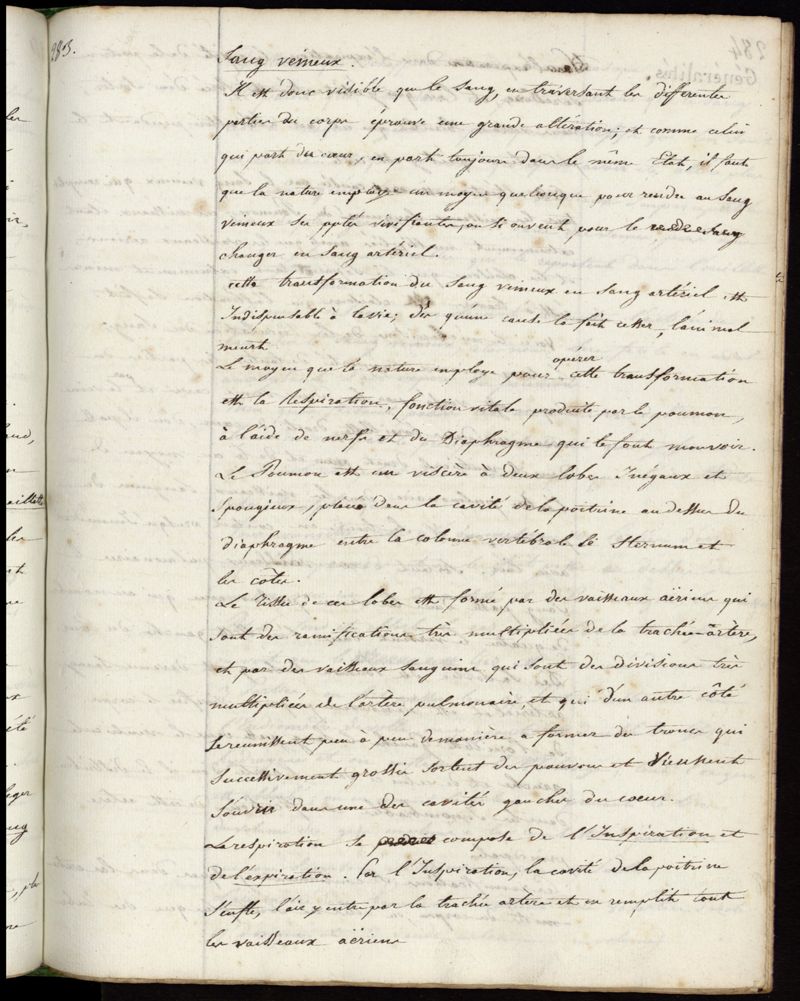 283.
Sang veineux.
Il est donc visible que le sang, en traversant les differentes
parties du corps éprouve une grande altération; et comme celui
qui part du cœur, en part toujours dans le même Etat, il faut
que la nature employe un moyen quelconque pour rendre au sang
veineux ses ptés vivifiantes, ou si on veut pour le rendre sang
changer en sang artériel.
cette transformation du sang veineux en sang artériel est
Indispensable à la vie; dès qu'une cause la fait cesser, l'animal
meurt
opérer
Le moyen que la nature employe pour cette transformation
est la Respiration, fonction vitale produite par le poumon,
à l'aide de nerfs et du Diaphragme qui le font mouvoir.
Le Poumon est un viscère à deux lobes Inégaux et
spongieux, placé dans la cavité de la poitrine au dessus du
diaphragme entre la colonne vertébrale le sternum et
les côtes.
Le Tissu de ces lobes est formé par des vaisseaux aëriens qui
sont des ramifications très multipliées de la trachée-artère,
et par des vaisseaux sanguins qui sont des divisions très
multipliées de l'artère pulmonaire, et qui d'un autre côté
se reunissent peu à peu de manière a former des troncs qui
successivement grossis sortent des poumons et viennent
s'ouvrir dans une des cavités gauches du cœur.
La respiration se compose de l'Inspiration et
de l'expiration. Par l'Inspiration, la cavité de la poitrine
s'enfle, l'air y entre par la trachée artère et en remplit tout
les vaisseaux aëriens
284
Généralités